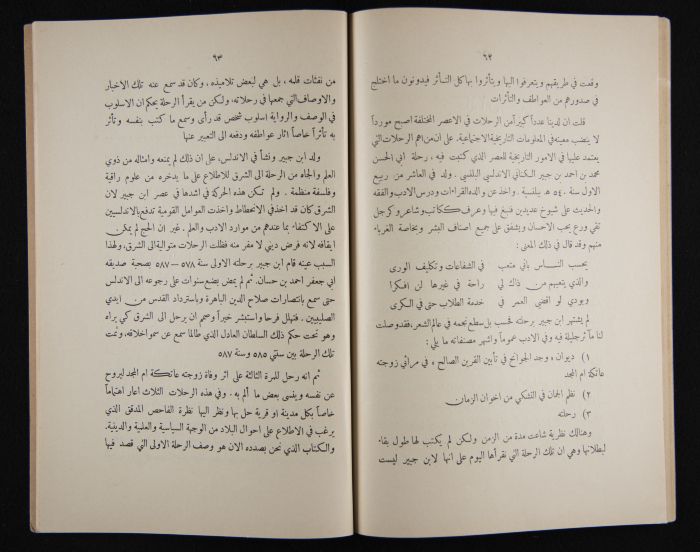 ٦٢
وقعت في طريقهم ويتعرفوا اليها ويتأثروا بها كل التأثر فيدونون ما اختلج
في صدورهم من العواطف والتأثرات
قلت ان لدينا عدداً كبيراً من الرحلات في الاعصر المختلفة اصبح مورداً
لا ينضب معينه في المعلومات التاريخية الاجتماعية. على ان من اهم الرحلات التي
يعتمد عليها في الامور التاريخية للعصر الذي كتبت فيه ، رحلة ابي الحسن
محمد بن احمد بن جبير الكناني الاندلسي البلنسي . ولد في العاشر من ربيع
الاول سنة ٥٤٠ هـ ببلنسية . واخذ عن والده القراءات ودرس الادب والفقه
والحديث على شيوخ عديدين فنبغ فيها وعرف ككاتب وشاعر وكرجل
تقي ورع يحب الاحسان ويشفق على جميع اصناف البشر وبخاصة الغرباء
منهم وقد قال في ذلك المعنى :
يحسب النـاس باني متعب في الشفاعات وتكليف الورى
والذي يتعبهم من ذاك لي راحة في غيرها لن افكرا
وبودي لو اقضي العمر في خدمة الطلاب حتى في الكرى
لم يشتهر ابن جبير برحلته لحسب بل سطع نجمه في عالم الشعر ، فقد وصلت
لنا مآثر جليلة فيه وفي الادب عموماً واشهر مصنفاته ما يلي :
١) ديوان ، وجد الجوانح في تأبين القرين الصالح ، في مراثي زوجته
عاتكة ام المجد
٢) نظم الجمان في التشكي من اخوان الزمان
٣) رحلته
وهنالك نظرية شاعت مدة من الزمن ولكن لم يكتب لها طول بقاء
لبطلانها وهي ان تلك الرحلة التي نقرأها اليوم على انها لابن جبير ليست
٦٣
من نفثات قلمه ، بل هي لبعض تلاميذه ، وكان قد سمع عنه تلك الاخبار
والاوصاف التي جمعها في رحلاته ، ولكن من يقرأ الرحلة يحكم ان الاسلوب
في الوصف والرواية اسلوب شخص قد رأى وسمع ما كتب بنفسه وتأثر
به تأثراً خاصاً اثار عواطفه ودفعه الى التعبير عنها
ولد ابن جبير ونشأ في الاندلس، على ان ذلك لم يمنعه وامثاله من ذوي
العلم والجاه من الرحلة الى الشرق للاطلاع على ما يدخره من علوم راقية
وفلسفة منظمة . ولم تكن هذه الحركة في اشدها في عصر ابن جبير لان
الشرق كان قد اخذ في الانحطاط واخذت العوامل القومية تدفع بالاندلسيين
على الاكتفاء بما عندهم من موارد الادب والعلم . غير ان الحج لم يكن
ايقافه لانه فرض ديني لا مفر منه فظلت الرحلات متوالية الى الشرق ، ولهذا
السبب عينه قام ابن جبير برحلته الاولى سنة ٥٧٨ — ٥٨٧ بصحبة صديقه
ابي جعفر احمد بن حسان. ثم لم يمض بضع سنوات على رجوعه الى الاندلس
حتى سمع بانتصارات صلاح الدين الباهرة وباسترداد القدس من ايدي
الصليبيين . فتهلل فرحاً واستبشر خيراً وصمم ان يرحل الى الشرق كي يراه
وهو تحت حكم ذلك السلطان العادل الذي طالما سمع عن سمو اخلاقه ، وتمت
تلك الرحلة بين سنتي ٥٨٥ وسنة ٥٨٧
ثم انه رحل للمرة الثالثة على اثر وفاة زوجته عاتكة ام المجد ليروح
عن نفسه وينسى بعض ما ألم به . وفي هذه الرحلات الثلاث اعار اهتماماً
خاصاً بكل مدينة او قرية حل بها ونظر اليها نظرة الفاحص المدقق الذي
يرغب في الاطلاع على احوال البلاد من الوجهة السياسية والعلمية والدينية.
والكتاب الذي نحن بصدده الان هو وصف الرحلة الاولى التي قصد فيها